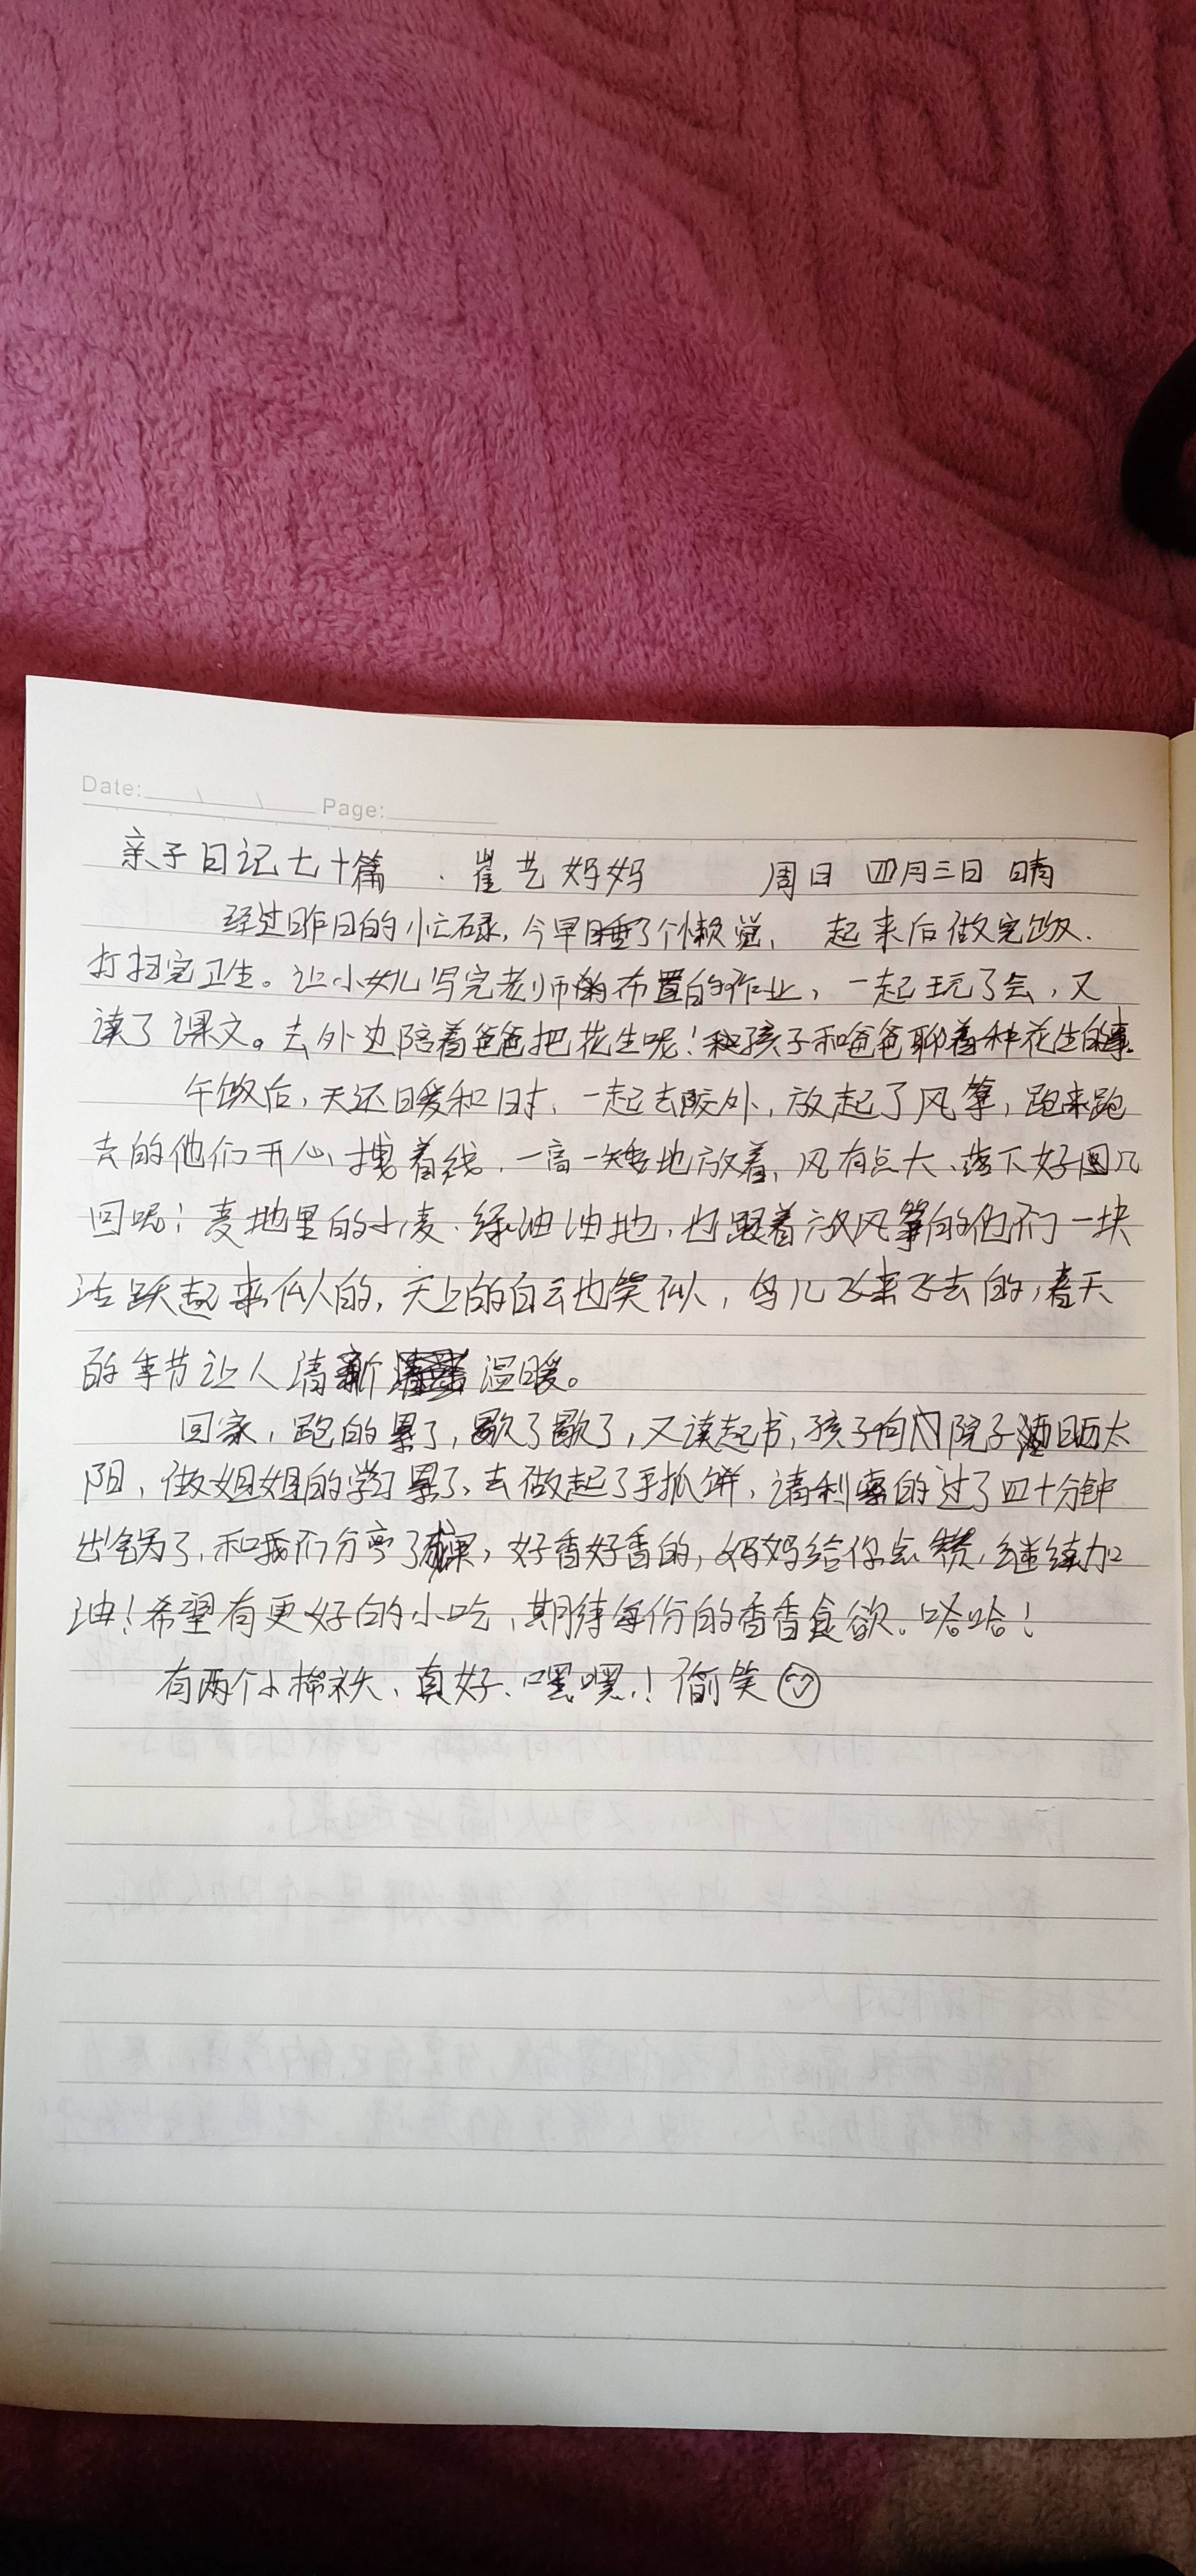 Date: Page:
亲子日记七十篇 . 崔艺妈妈 周日 四月三日 晴
经过昨日的忙碌,今早睡了个懒觉、起来后做完饭、
打扫完卫生。让小女儿写完老师的布置的作业,一起玩了会,又
读了课文。去外边陪着爸爸把花生呢!孩子和爸爸聊着种花生的事。
午饭后,天还暖和时、一起去郊外,放起了风筝,跑来跑
去的他们开心,拽着线、一高一矮地放着、风有点大、落下好几
回呢!麦地里的小麦、绿油油地,也跟着放风筝的他们一块
活跃起来似的,天上的白云也笑似,鸟儿飞来飞去的,春天
的季节让人清新温暖。
回家,跑的累了,歇了歇了,又读起书,孩子向院子晒太
阳,做姐姐的学习累了、去做起了手抓饼,请利的过了四十分钟
出锅了、和我们分享了,好香好香的,妈妈给你点赞,继续加
油!希望有更好的小吃、期待每份的香香食欲、哈哈!
有两个小棉袄、真好、嘿嘿!偷笑